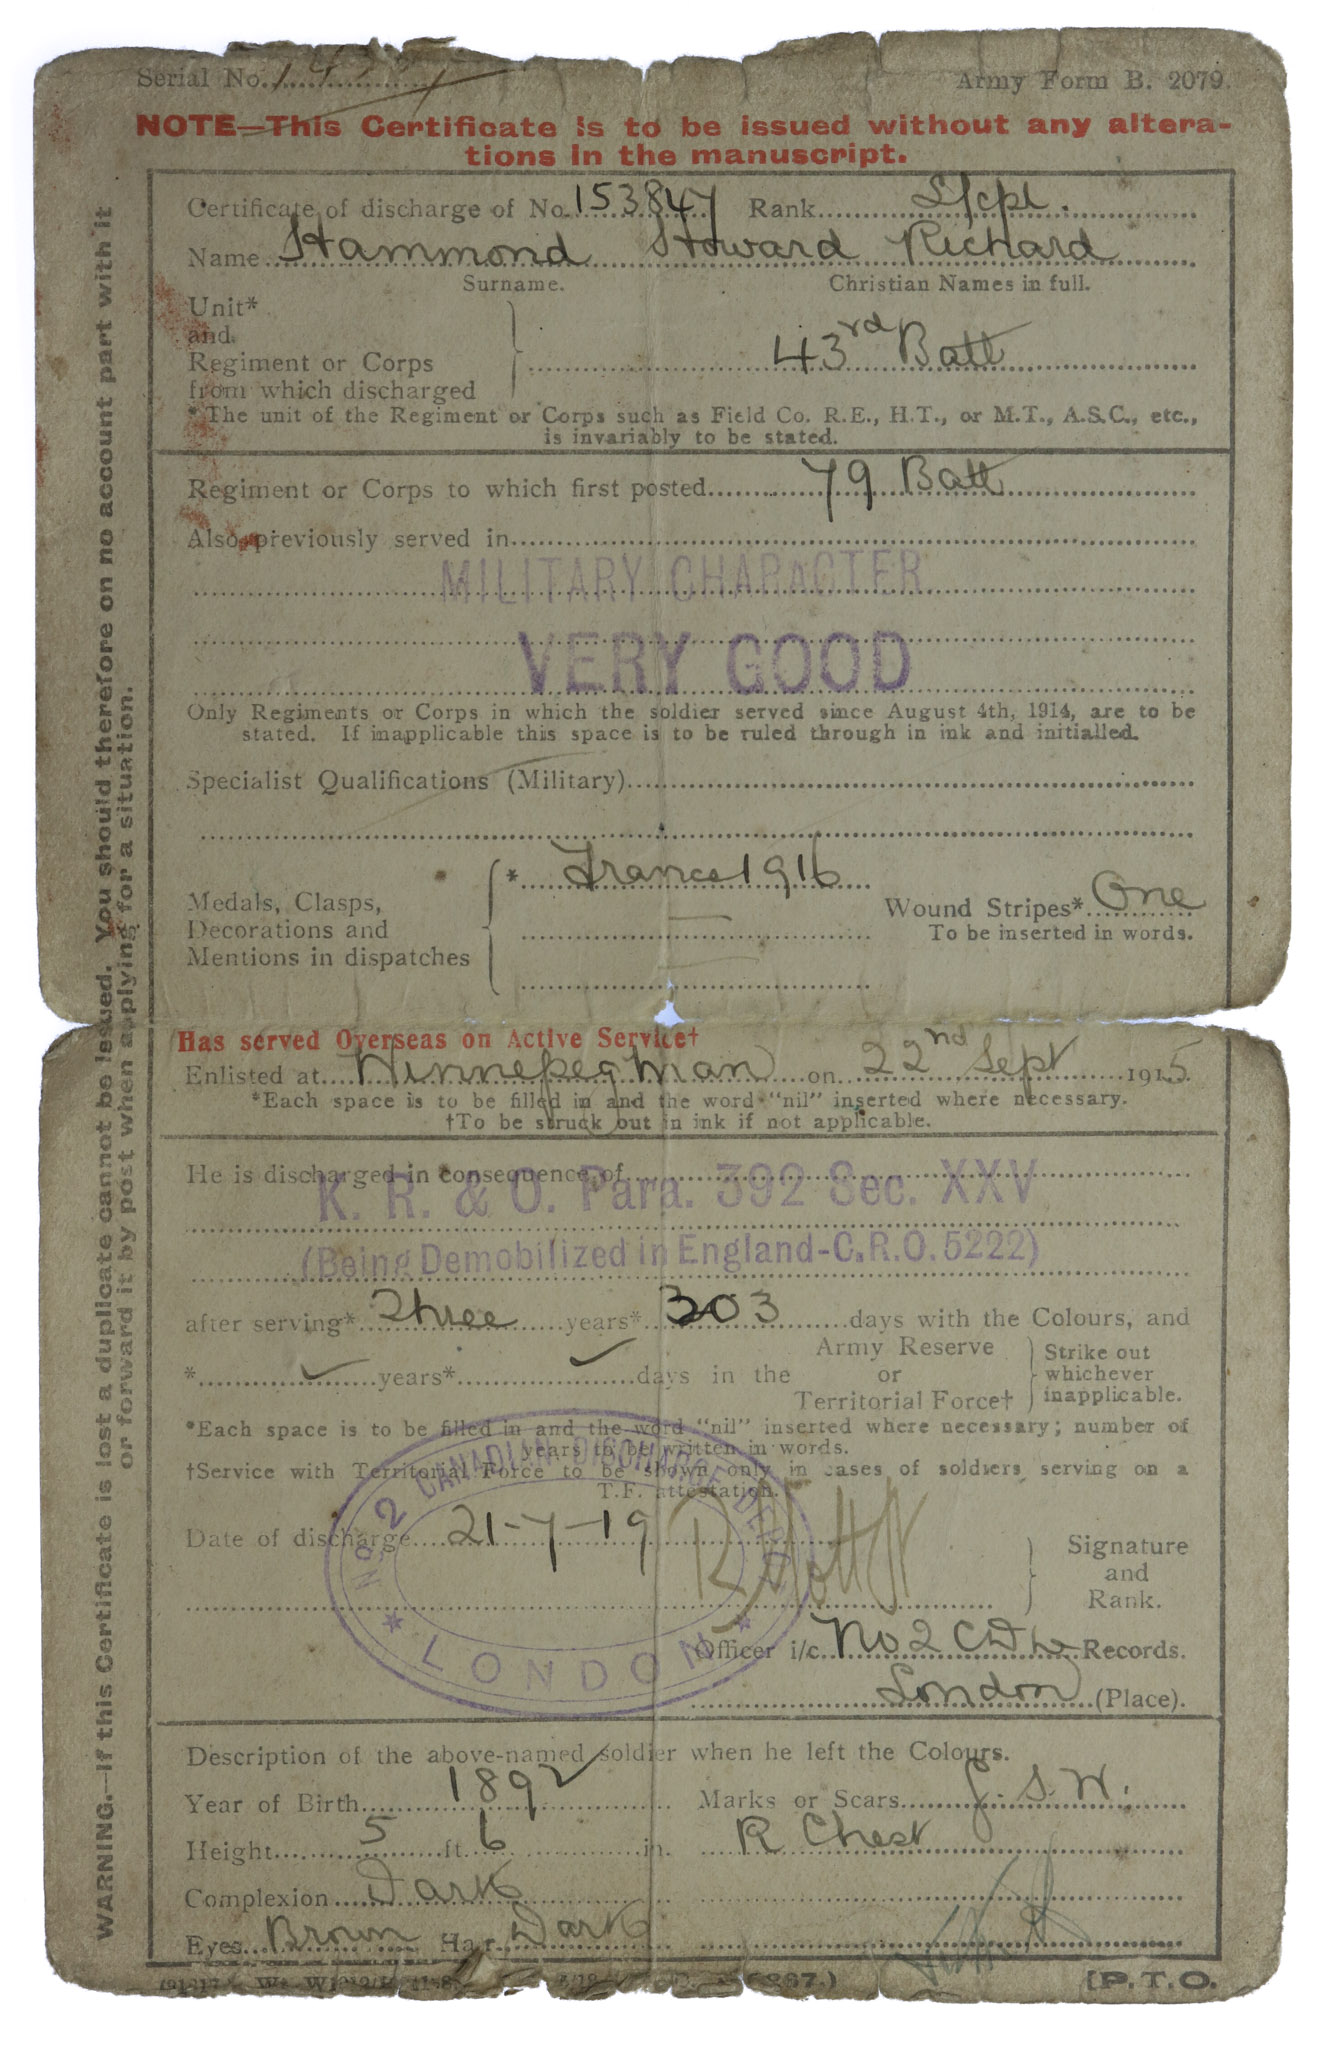 Serial No.
Army Form B. 2079.
NOTE—This Certificate is to be issued without any altera-
tions in the manuscript.
Certificate of discharge of No. 153847 Rank L/cpl.
Name Hammond Howard Richard
Surname. Christian Names in full.
Unit*
and
Regiment or Corps
from which discharged
43rd Batt
* The unit of the Regiment or Corps such as Field Co. R.E., H.T., or M.T., A.S.C., etc.,
is invariably to be stated.
Regiment or Corps to which first posted 79 Batt
Also previously served in
MILITARY CHARACTER
VERY GOOD
Only Regiments or Corps in which the soldier served since August 4th, 1914, are to be
stated. If inapplicable this space is to be ruled through in ink and initialled.
Specialist Qualifications (Military)
Medals, Clasps,
Decorations and
Mentions in dispatches
* France 1916
Wound Stripes* One
To be inserted in words.
Has served Overseas on Active Service†
Enlisted at Winnepeg Man on 22nd Sept 1915
*Each space is to be filled in and the word "nil" inserted where necessary.
†To be struck out in ink if not applicable.
He is discharged in consequence of
K. R. & O. Para. 392 Sec. XXV
(Being Demobilized in England-C.R.O. 5222)
after serving* Three years* 303 days with the Colours, and
* years* days in the
Army Reserve
or
Territorial Force†
Strike out
whichever
inapplicable.
*Each space is to be filled in and the word "nil" inserted where necessary; number of
years to be written in words.
†Service with Territorial Force to be shown only in cases of soldiers serving on a
T.F. attestation.
No 2 CANADIAN DISCHARGE DEPOT
* LONDON *
Date of discharge 21-7-19
Signature
and
Rank.
Officer i/c No 2 CDD Records.
London (Place).
Description of the above-named soldier when he left the Colours.
Year of Birth 1892 Marks or Scars G. S. W.
Height 5 ft. 6 in. R Chest
Complexion Dark
Eyes Brown Hair Dark
[P.T.O.
WARNING.—If this Certificate is lost a duplicate cannot be issued. You should therefore on no account part with it
or forward it by post when applying for a situation.